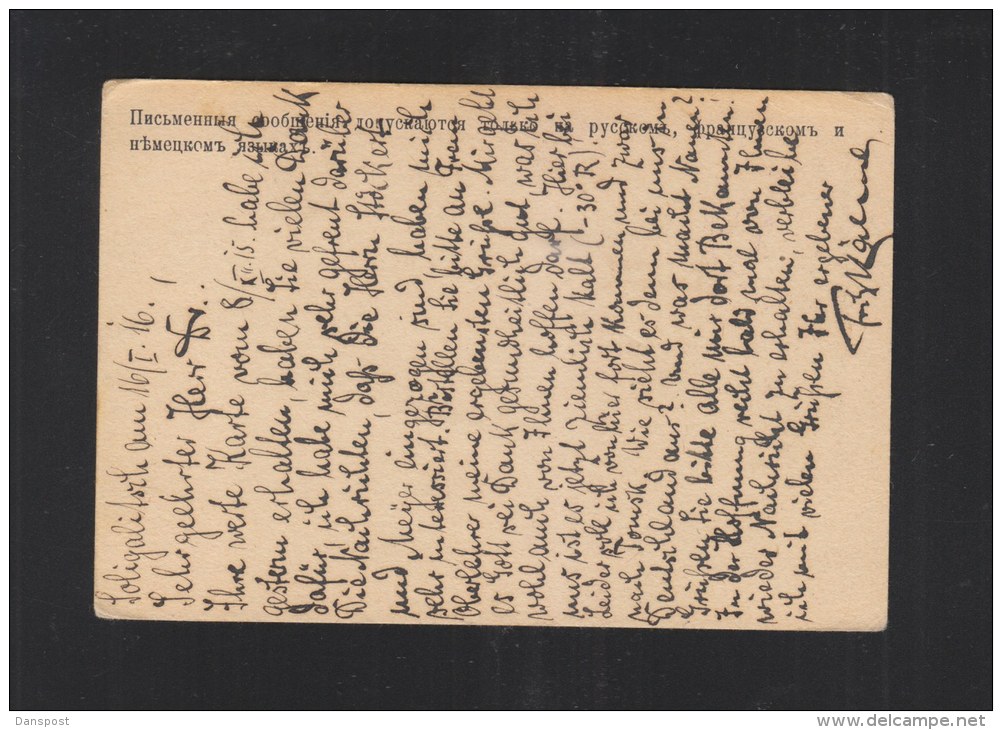 Письменныя сообщенія допускаются только на русскомъ, французскомъ и
нѣмецкомъ языкахъ.
Soligalitsch am 16/I. 16.
Sehr geehrter Herr Dr.!
Ihre werte Karte vom 8/XII. 15. habe ich
gestern erhalten, haben Sie vielen Dank
dafür, ich habe mich sehr gefreut darüber
Die Nachrichten, daß die Herrn Stöckert
und Meyer eingezogen sind haben mich
sehr interessiert. Bestellen Sie bitte an
Oberlehrer meine ergebensten Grüße. Mir geht
es Gott sei Dank gesundheitlich gut, was ich
wohl auch von Ihnen hoffen darf. Hier bei
uns ist es jetzt ziemlich kalt (-30° R).
Leider soll ich von hier fort kommen und zwar
nach Tomsk. Wie sieht es denn bei uns in
Deutschland aus? und was macht Naum?
Grüßen Sie bitte alle uns dort Bekannten.
In der Hoffnung recht bald mal von Ihnen
wieder Nachricht zu erhalten, verbleibe
ich mit vielen Grüßen Ihr ergebener
Fritz
Danspost
www.delcampe.net